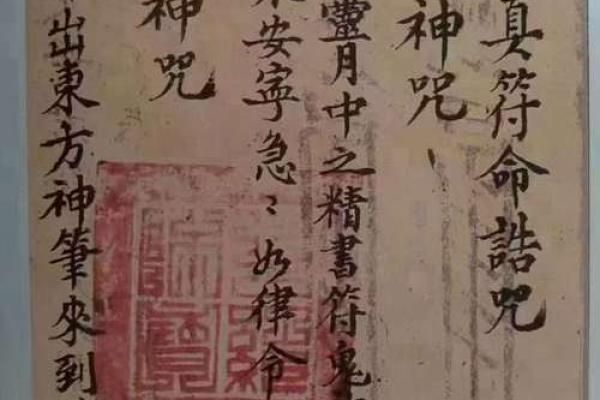 真符命誥咒
神咒
靈月中之精書符鬼
安寧急〻如律令
神咒
出東方神筆來到